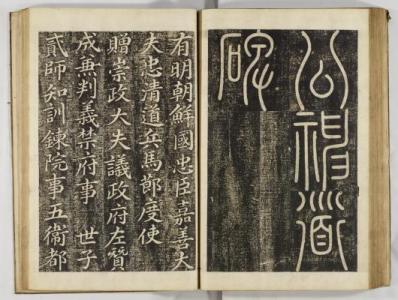 公神道
碑
有明朝鮮國忠臣嘉善大
夫忠清道兵馬節度使
贈崇政大夫議政府左贊
成兼判義禁府事 世子
貳師知訓鍊院事五衛都